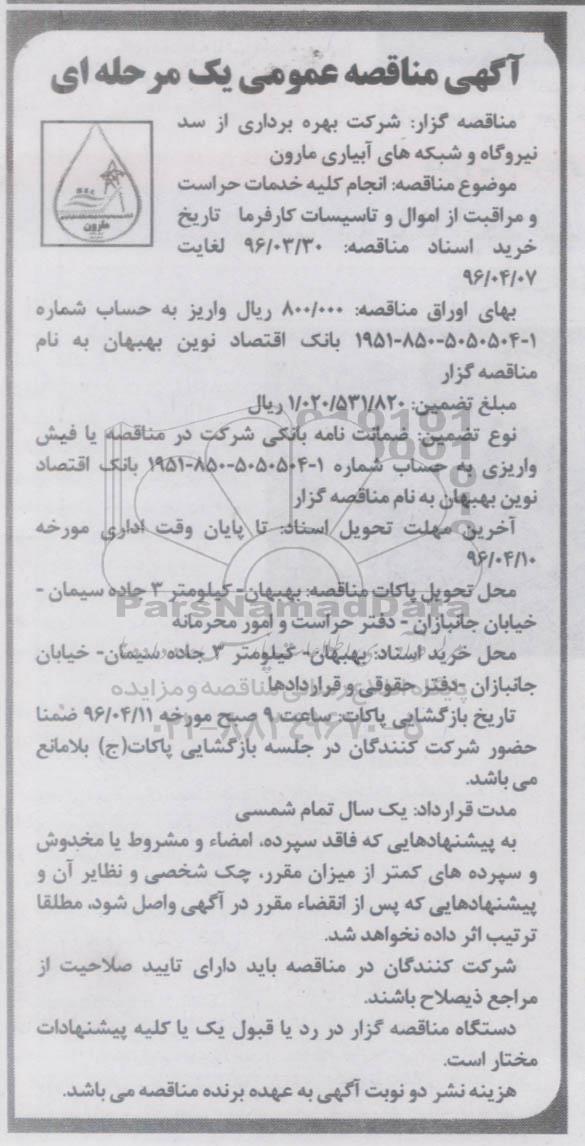 آگهی مناقصه عمومی یک مرحله ای
مناقصه گزار: شرکت بهره برداری از سد
نیروگاه و شبکه های آبیاری مارون
موضوع مناقصه: انجام کلیه خدمات حراست
و مراقبت از اموال و تاسیسات کارفرما تاریخ
خرید اسناد مناقصه: ۹۶/۰۳/۳۰ لغایت
۹۶/۰۴/۰۷
مارون
بهای اوراق مناقصه: ۸۰۰/۰۰۰ ریال واریز به حساب شماره
۱-۵۰۵۰۵۰۴-۸۵۰-۱۹۵۱ بانک اقتصاد نوین بهبهان به نام
مناقصه گزار
مبلغ تضمین: ۱/۰۲۰/۵۳۱/۸۲۰ ریال
نوع تضمین: ضمانت نامه بانکی شرکت در مناقصه یا فیش
واریزی به حساب شماره ۱-۵۰۵۰۵۰۴-۸۵۰-۱۹۵۱ بانک اقتصاد
نوین بهبهان به نام مناقصه گزار
آخرین مهلت تحویل اسناد: تا پایان وقت اداری مورخه
۹۶/۰۴/۱۰
محل تحویل پاکات مناقصه: بهبهان- کیلومتر ۳ جاده سیمان -
خیابان جانبازان - دفتر حراست و امور محرمانه
ParsNamadData
محل خرید اسناد: بهبهان- کیلومتر ۳ جاده سیمان- خیابان
جانبازان -دفتر حقوقی و قراردادها
پایگاه اطلاع رسانی مناقصه و مزایده
تاریخ بازگشایی پاکات: ساعت ۹ صبح مورخه ۹۶/۰۴/۱۱ ضمنا
۰۲۱-۸۸۳۴۹۶۷۰-۵
حضور شرکت کنندگان در جلسه بازگشایی پاکات(ج) بلامانع
می باشد.
مدت قرارداد: یک سال تمام شمسی
به پیشنهادهایی که فاقد سپرده، امضاء و مشروط یا مخدوش
و سپرده های کمتر از میزان مقرر، چک شخصی و نظایر آن و
پیشنهادهایی که پس از انقضاء مقرر در آگهی واصل شود، مطلقا
ترتیب اثر داده نخواهد شد.
شرکت کنندگان در مناقصه باید دارای تایید صلاحیت از
مراجع ذیصلاح باشند.
دستگاه مناقصه گزار در رد یا قبول یک یا کلیه پیشنهادات
مختار است.
هزینه نشر دو نوبت آگهی به عهده برنده مناقصه می باشد.